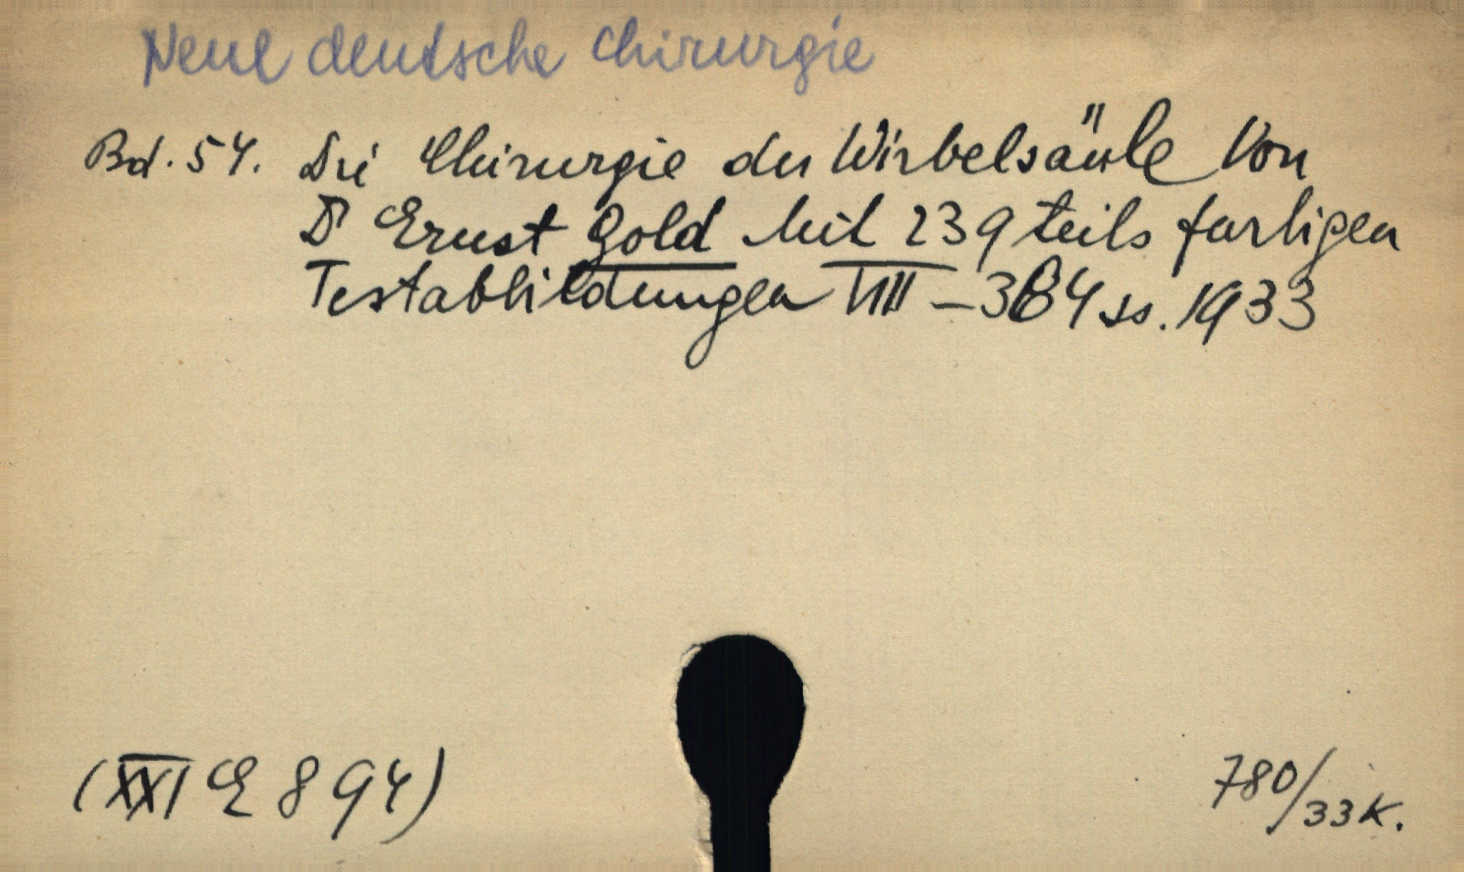 Neue deutsche Chirurgie
Bd. 54. Die Chirurgie der Wirbelsäule Von
Dr Ernst Gold Mit 239 teils farbigen
Textabbildungen VIII – 384 ss. 1933
(XXI E 894)
780/33K.